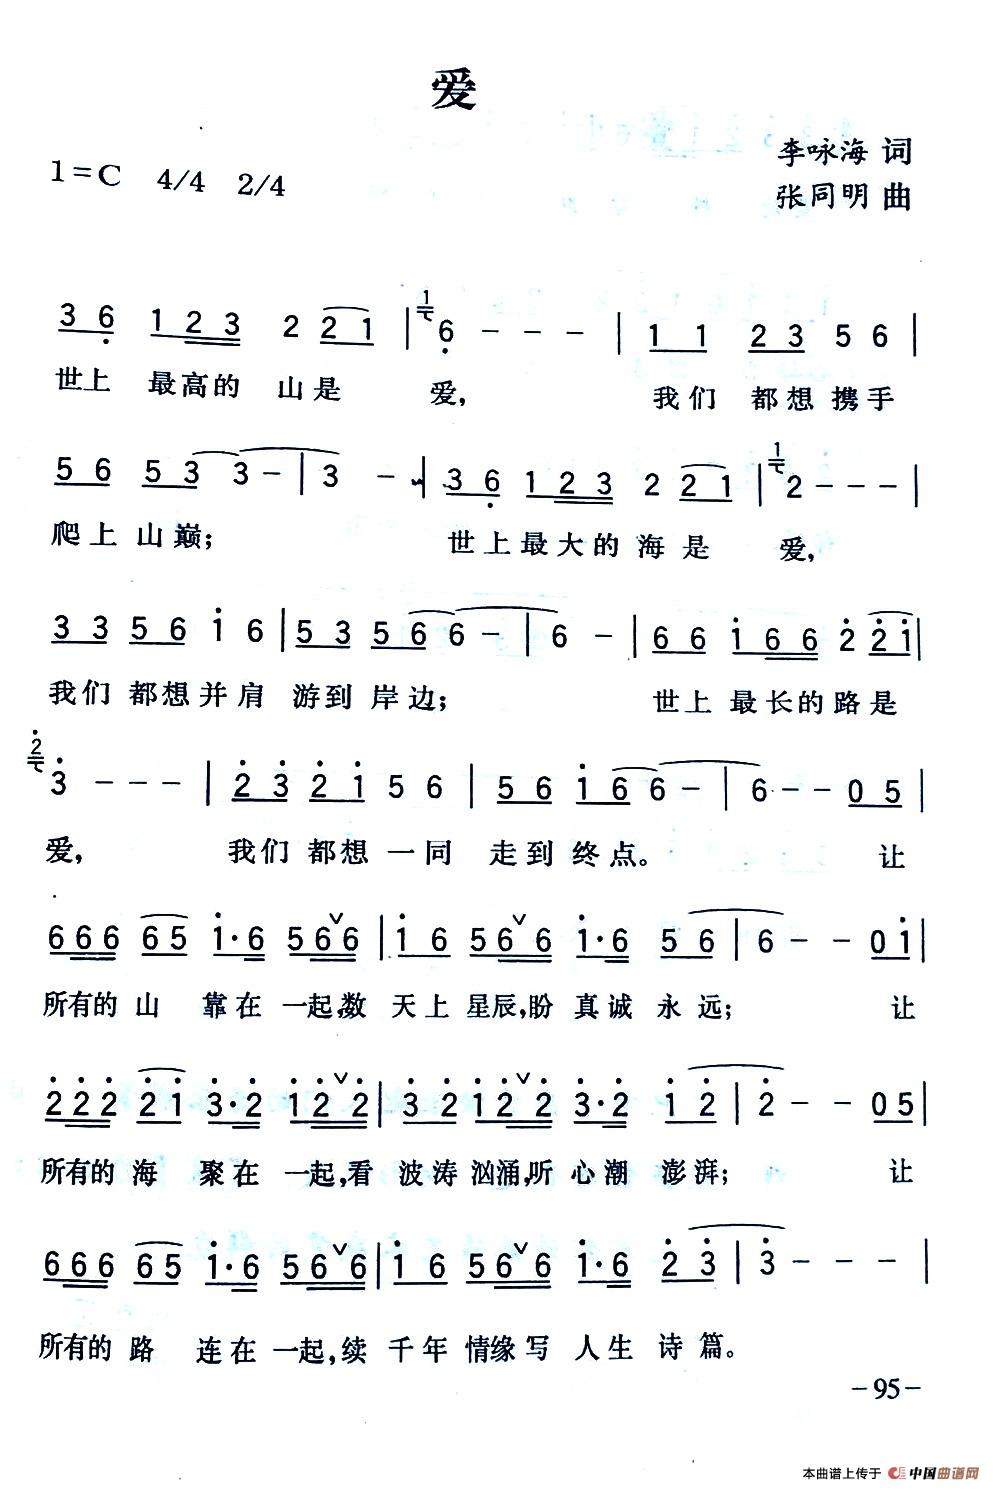 爱
1=C 4/4 2/4
李咏海 词
张同明 曲
3 6̣ 1 2 3 2 2 1 | 1 6̣ - - - | 1 1 2 3 5 6 |
世上 最高的 山是 爱, 我们 都想携手
5 6 5 3 3 - | 3 - | 3 6̣ 1 2 3 2 2 1 | 1 2 - - - |
爬上山巅; 世上最大的海是 爱,
3 3 5 6 1̇ 6 | 5 3 5 6 6 - | 6 - | 6 6 1̇ 6 6 2̇ 2̇ 1̇ |
我们 都想并肩 游到 岸边; 世上 最长的路是
2̇ 3̇ - - - | 2̇ 3̇ 2̇ 1̇ 5 6 | 5 6 1̇ 6 6 - | 6 - - 0 5 |
爱, 我们 都想 一同 走到终点。 让
6 6 6 6 5 1̇·6 5 6 6 ∨ | 1̇ 6 5 6 6 ∨ 1̇·6 5 6 | 6 - - 0 1̇ |
所有的 山 靠在 一起,数 天上 星辰,盼 真诚 永远; 让
2̇ 2̇ 2̇ 2̇ 1̇ 3̇·2̇ 1̇ 2̇ 2̇ ∨ | 3̇ 2̇ 1̇ 2̇ 2̇ ∨ 3̇·2̇ 1̇ 2̇ | 2̇ - - 0 5 |
所有的 海 聚在 一起,看 波涛 汹涌,听 心潮 澎湃; 让
6 6 6 6 5 1̇·6 5 6 6 ∨ | 1̇ 6 5 6 6 ∨ 1̇·6 2̇ 3̇ | 3̇ - - - |
所有的 路 连在 一起,续 千年 情缘写 人生 诗篇。
-95-
本曲谱上传于 中国曲谱网